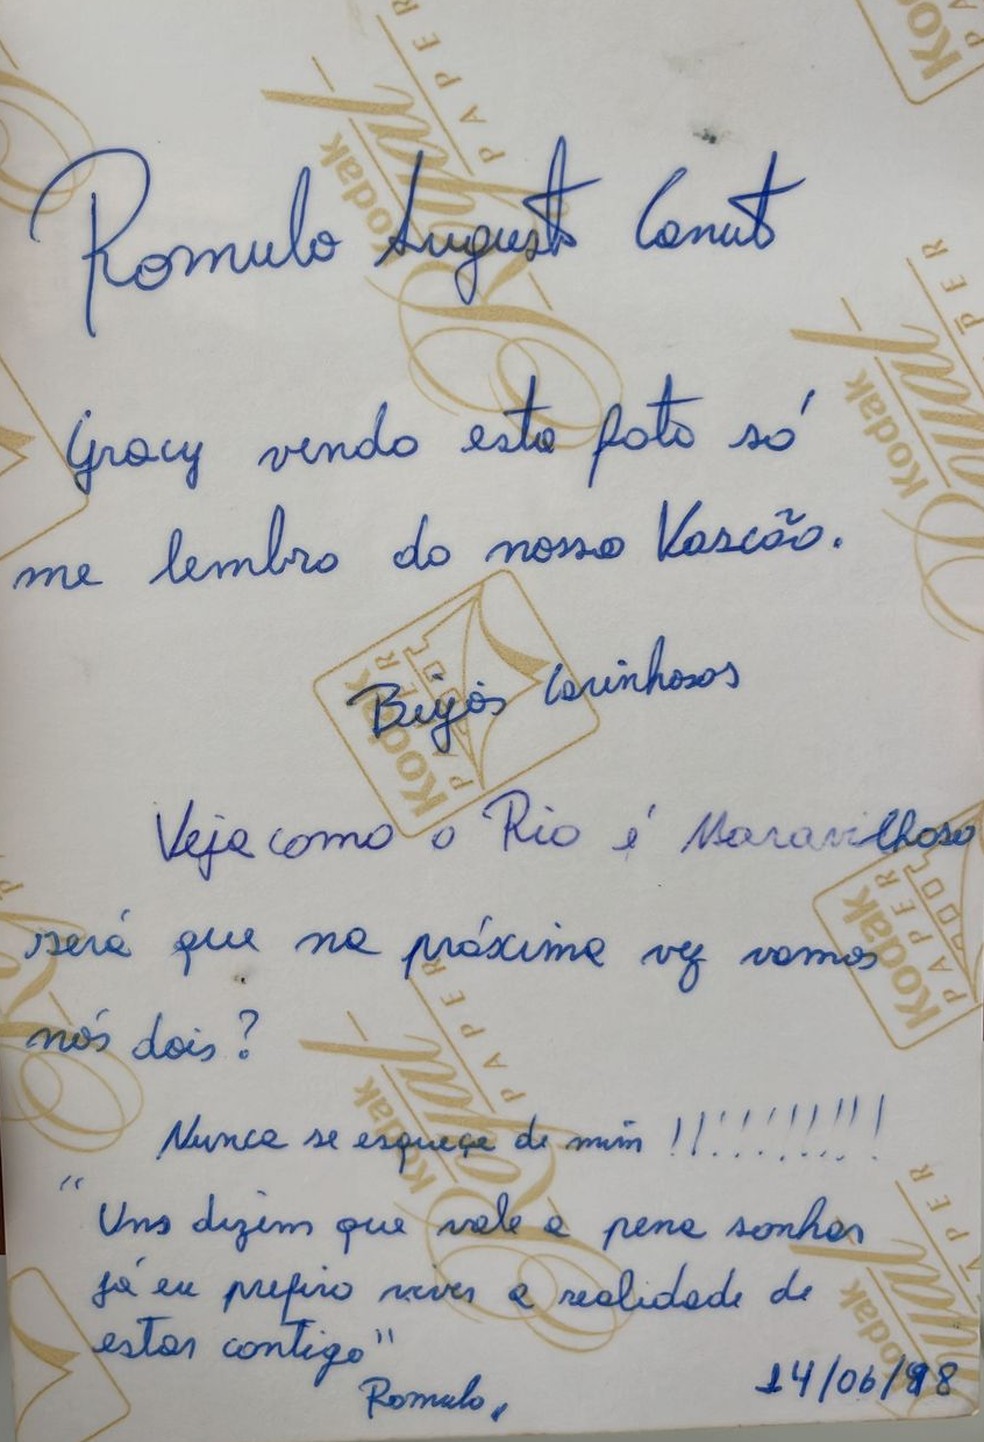 Romulo Augusto Canut
Gracy vendo esta foto só
me lembro do nosso Vascão.
Beijos Carinhosos
Veja como o Rio é Maravilhoso
será que na próxima vez vamos
nós dois?
Nunca se esqueçe de mim !!!!!!!!!!
"Uns dizem que vale a pena sonhar
já eu prefiro viver a realidade de
estar contigo"
Romulo,
14/06/98
Kodak Royal PAPER
Kodak PAPER